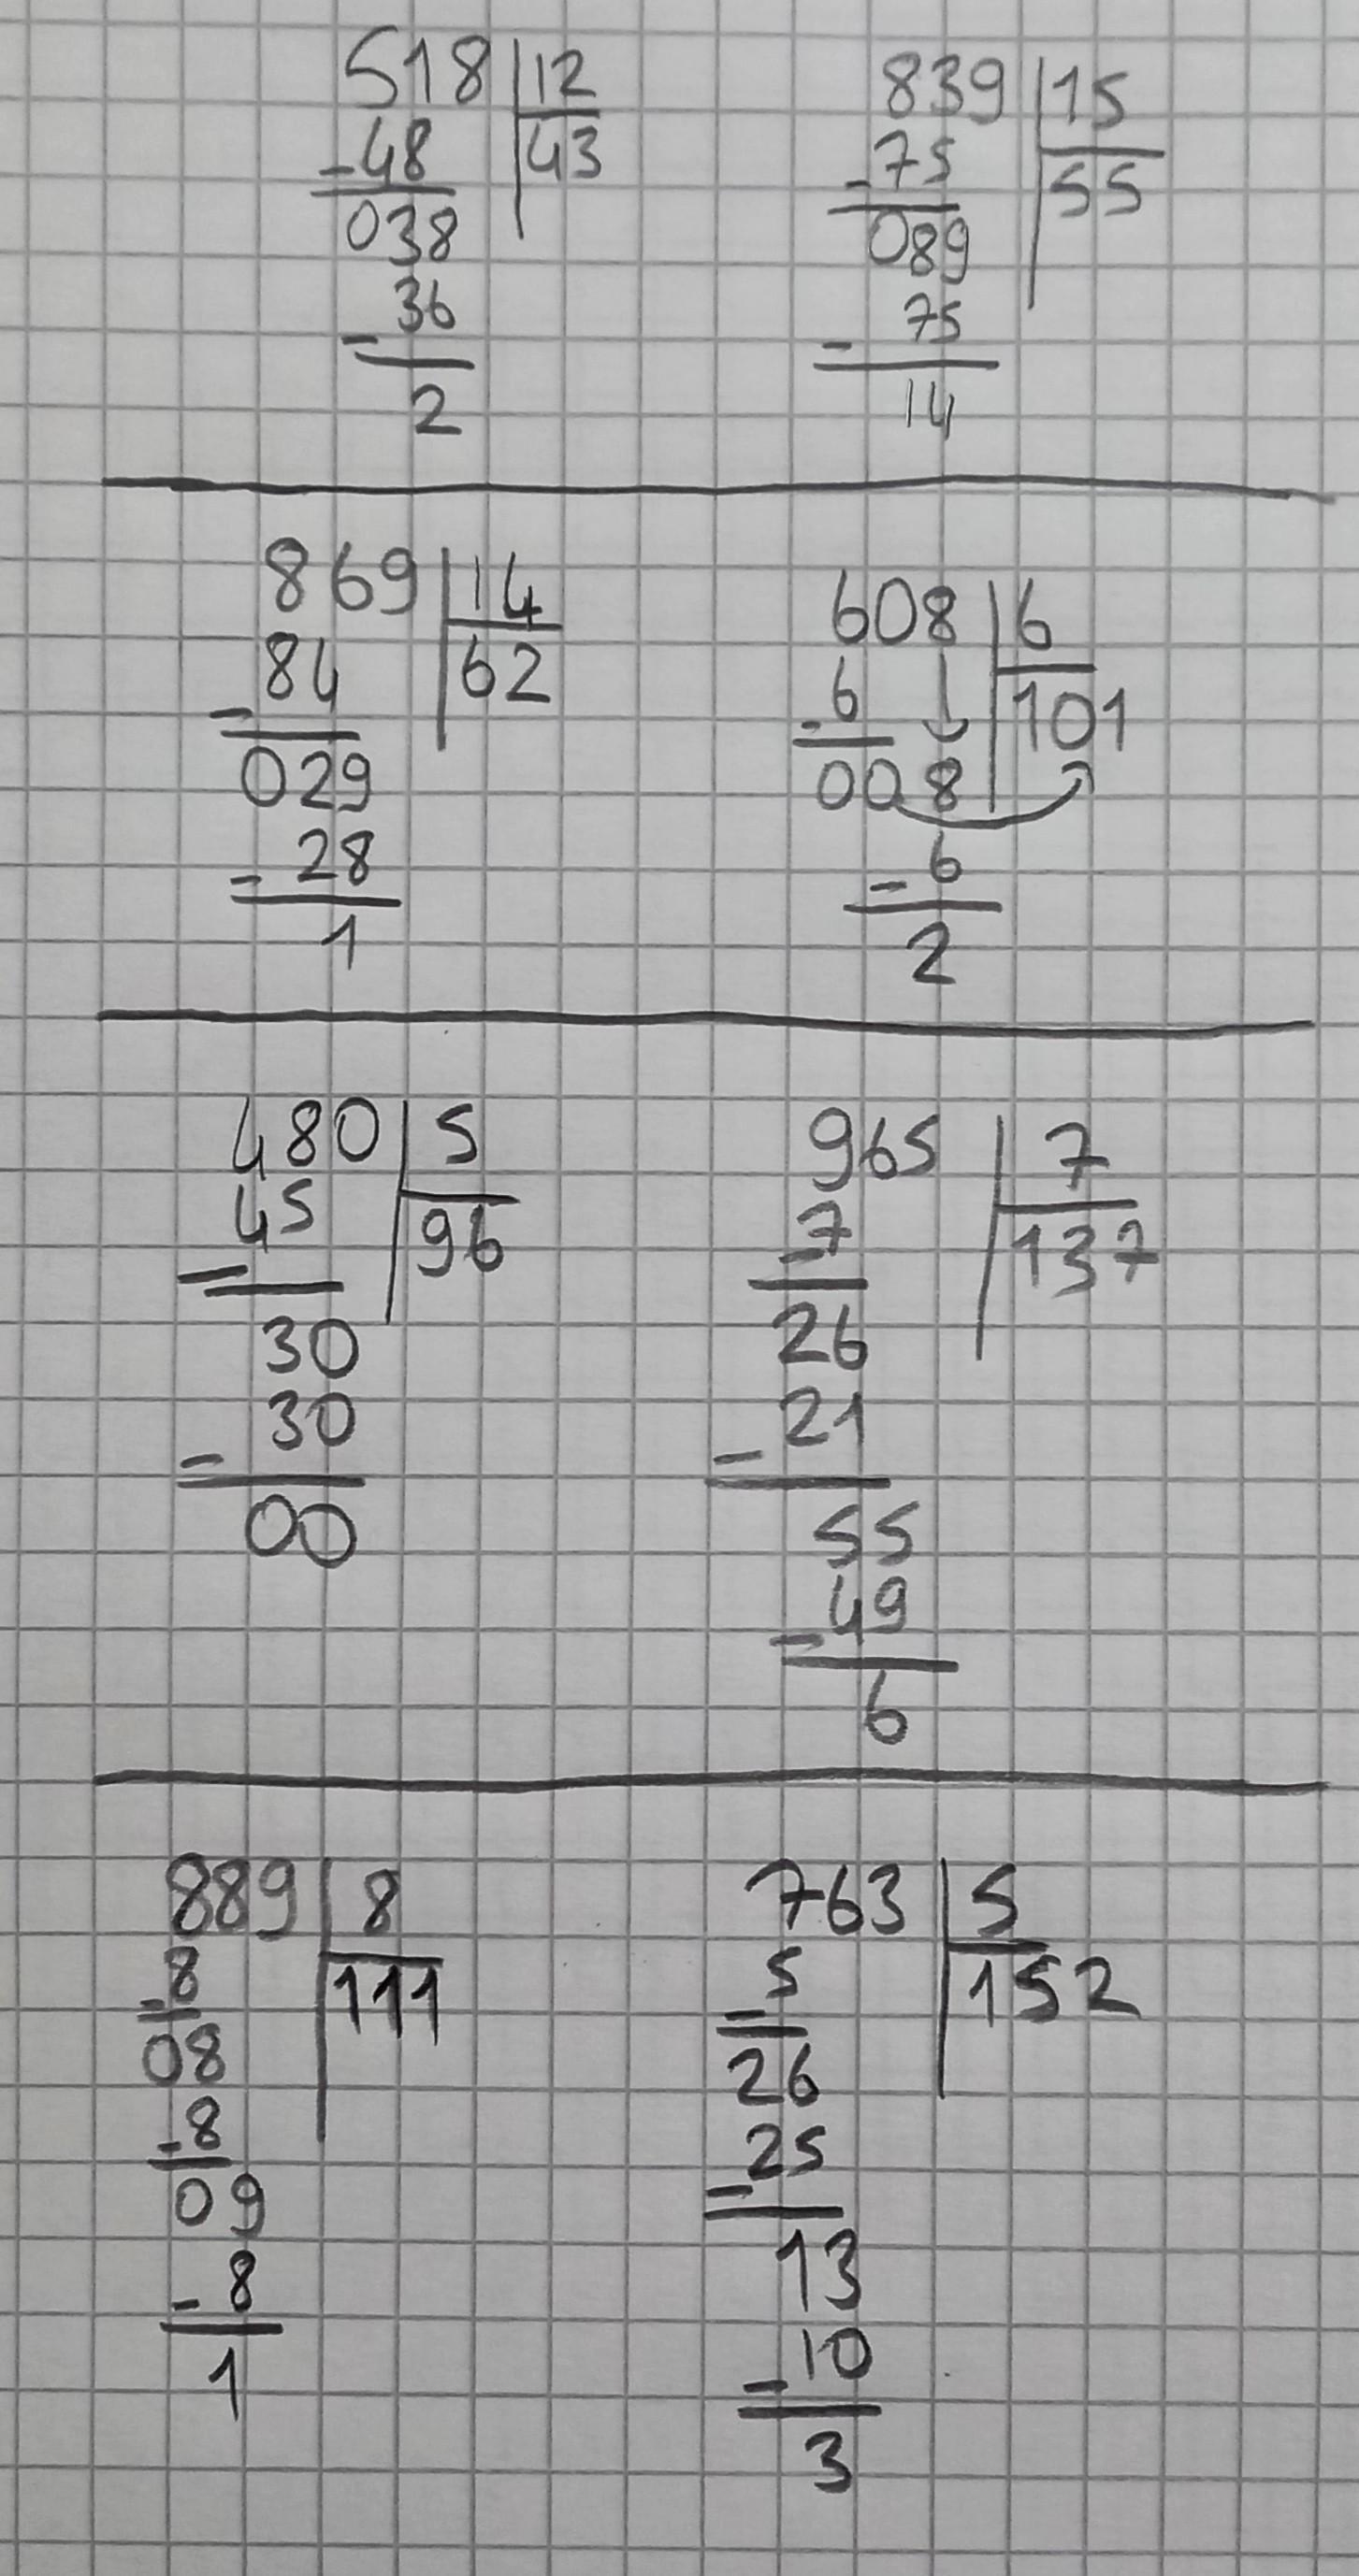 518 12
-48 43
038
- 36
2
839 15
-75 55
089
- 75
14
869 14
- 84 62
029
- 28
1
608 6
- 6 101
008
- 6
2
480 5
- 45 96
30
- 30
00
965 7
- 7 137
26
- 21
55
- 49
6
889 8
-8 111
08
-8
09
- 8
1
763 5
- 5 152
26
- 25
13
- 10
3